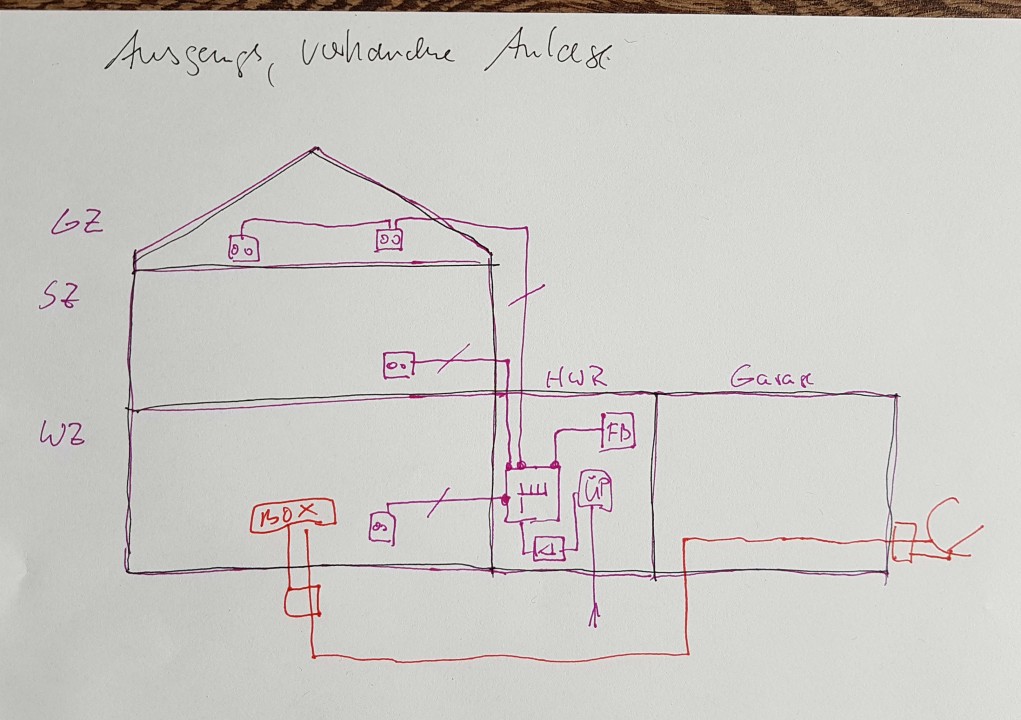 Ausgangs, vorhandne Anlage
GZ
SZ
HWR
Garage
WZ
FB
ÜP
BOX